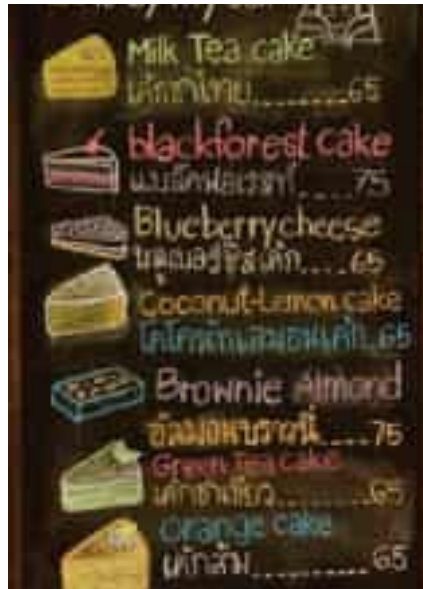 Milk Tea cake
เค้กชาไทย........65
blackforest cake
แบล็คฟอเรสท์....75
Blueberrycheese
บลูเบอร์รี่ชีสเค้ก....65
Coconut-Lemon cake
65
Brownie Almond
อัลมอนบราวนี่....75
Green Tea cake
เค้กชาเขียว........65
Orange cake
เค้กส้ม.........65